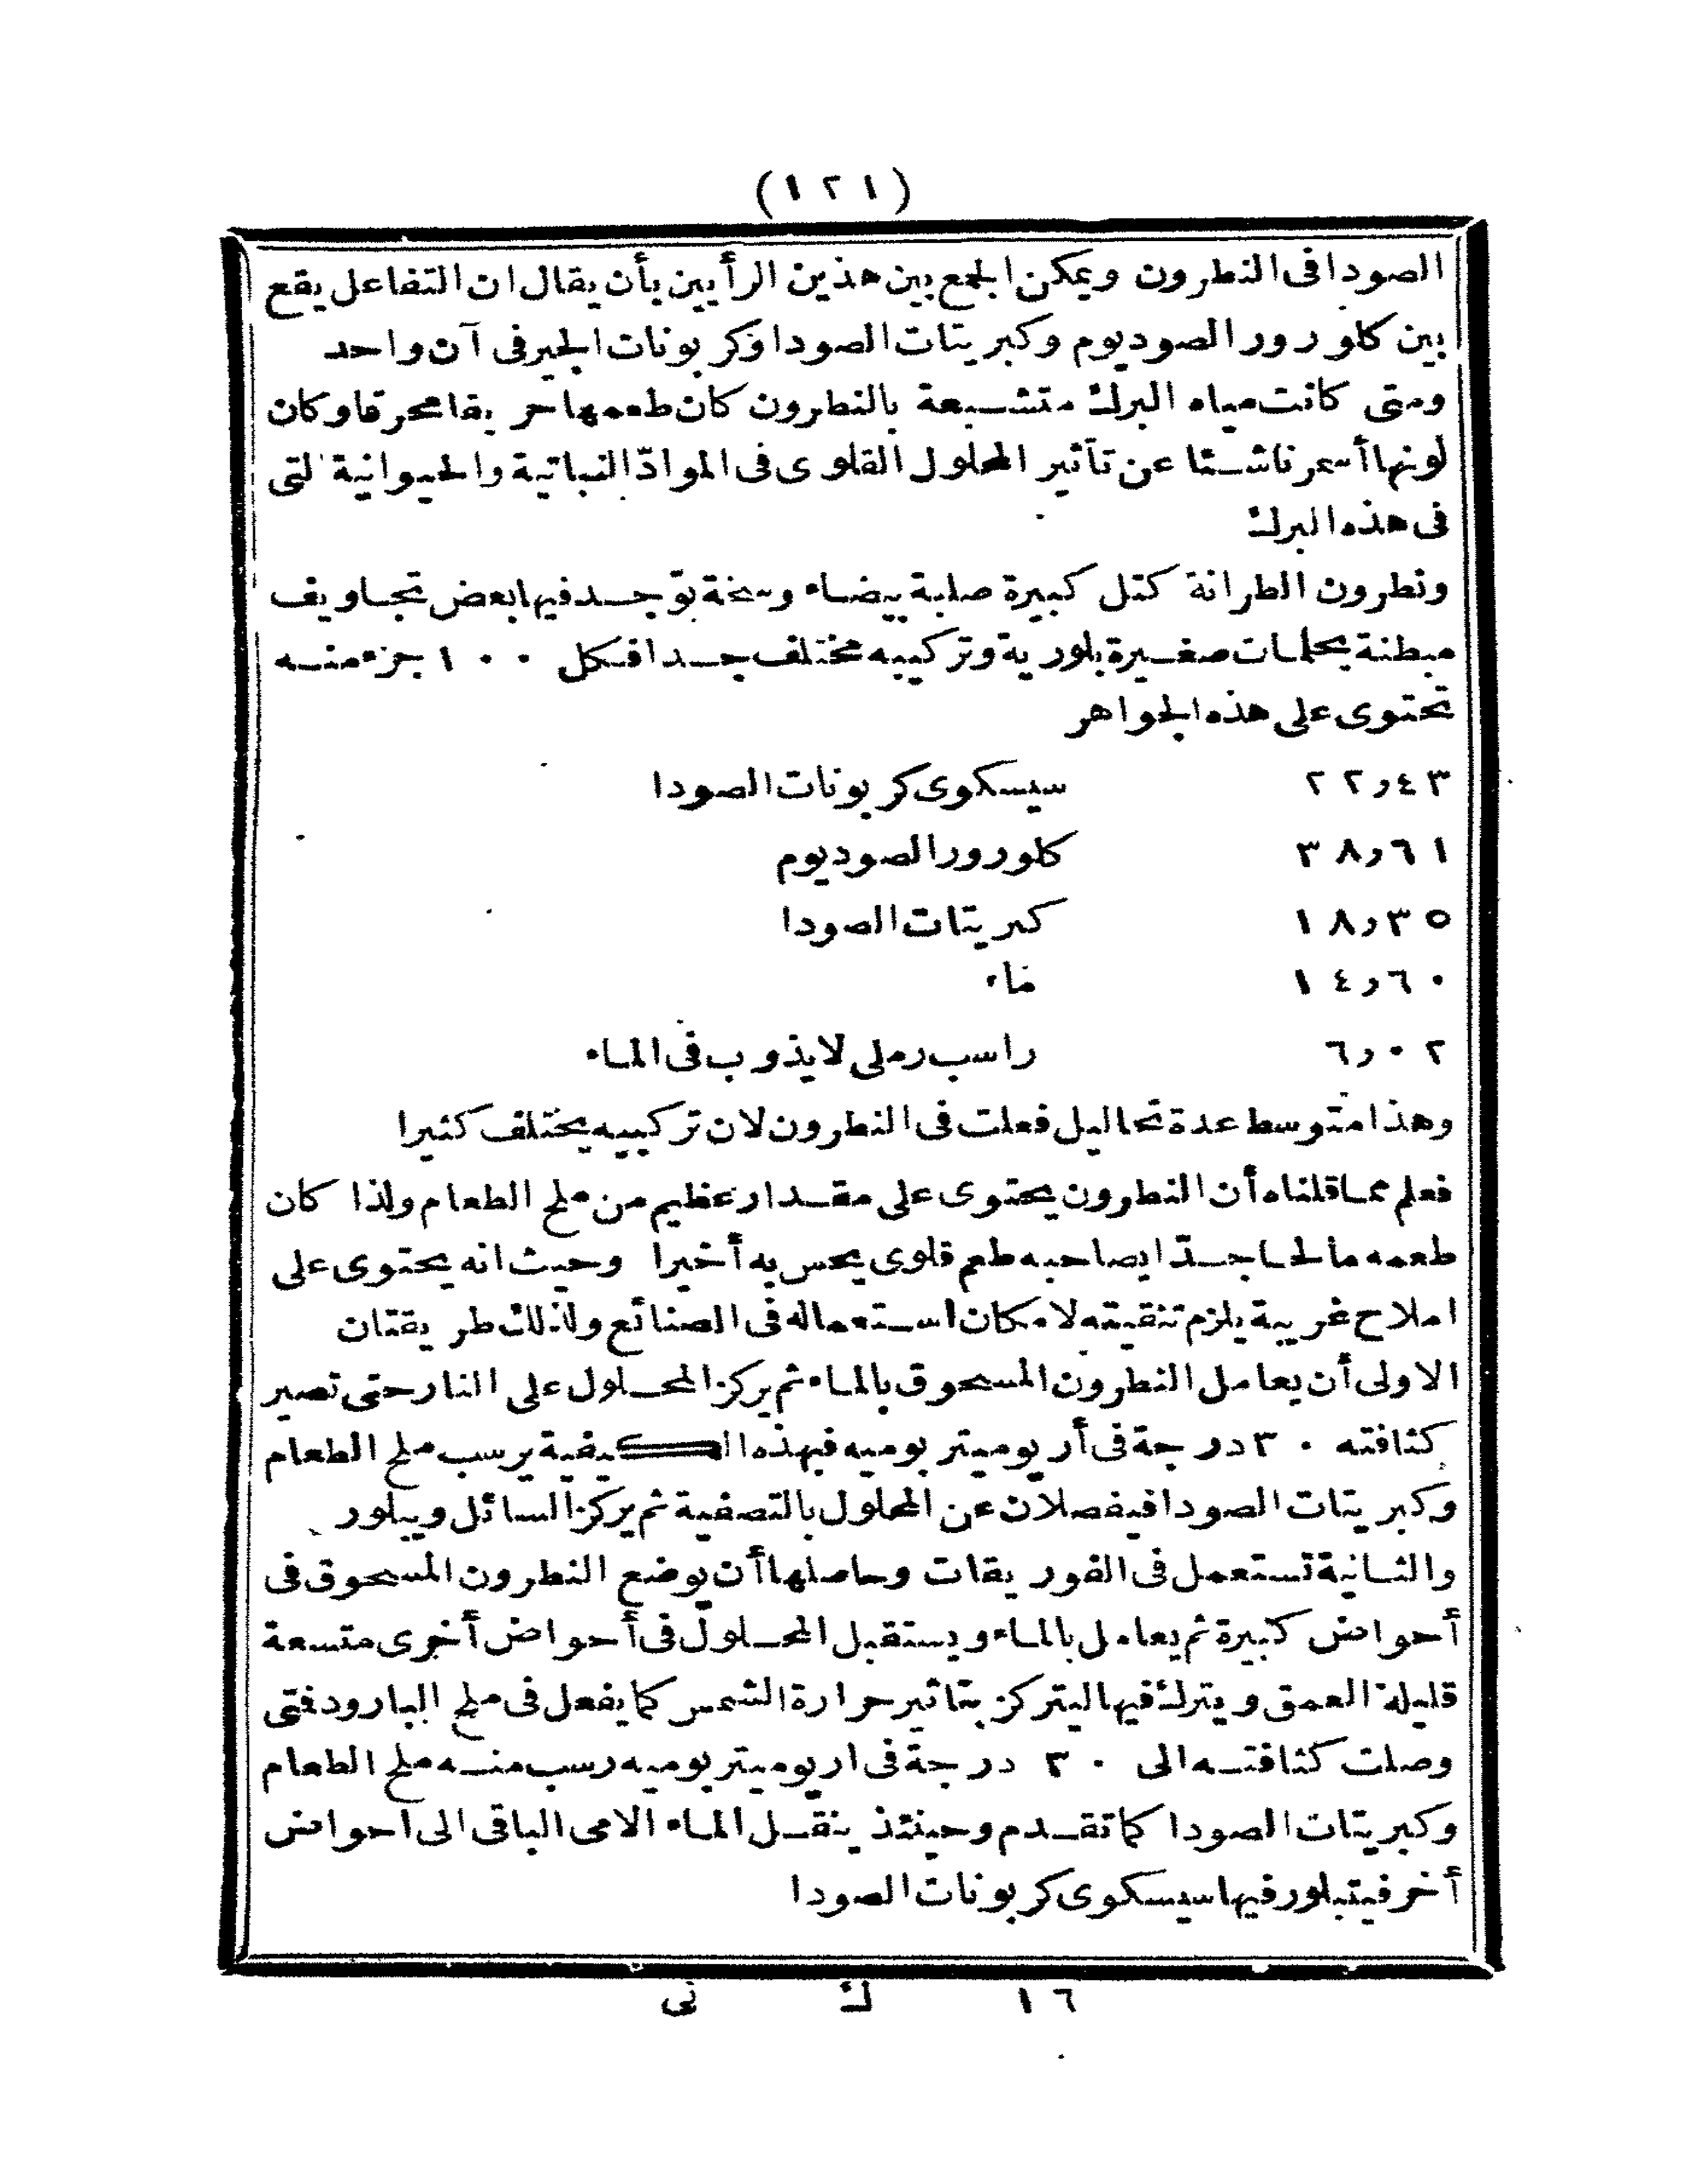 (١٢١)
الصودا فى النطرون ويمكن الجمع بين هذين الرأيين بأن يقال ان التفاعل يقع
بين كلورور الصوديوم وكبريتات الصودا وكربونات الجير فى آن واحد
ومتى كانت مياه البرك متشبعة بالنطرون كان طعمها حريفا محرقا وكان
لونها أسمر ناشئا عن تأثير المحلول القلوى فى الموادّ النباتية والحيوانية التى
فى هذه البرك
ونطرون الطرانة كتل كبيرة صلبة بيضاء وسخة توجد فيها بعض تجاويف
مبطنة بحلمات صغيرة بلورية وتركيبه مختلف جدا فكل ١٠٠ جزء منه
تحتوى على هذه الجواهر
٢٢٫٤٣ سيسكوى كربونات الصودا
٣٨٫٦١ كلورور الصوديوم
١٨٫٣٥ كبريتات الصودا
١٤٫٦٠ ماء
٦٫٠٢ راسب رملى لا يذوب فى الماء
وهذا متوسط عدة تحاليل فعلت فى النطرون لان تركيبه يختلف كثيرا
فعلم مما قلناه أن النطرون يحتوى على مقدار عظيم من ملح الطعام ولذا كان
طعمه مالحا جدّا يصاحبه طعم قلوى يحس به أخيرا وحيث انه يحتوى على
املاح غريبة يلزم تنقيته لامكان استعماله فى الصنائع ولذلك طريقتان
الاولى أن يعامل النطرون المسحوق بالماء ثم يركز المحلول على النار حتى تصير
كثافته ٣٠ درجة فى أريوميتر بوميه فبهذه الكيفية يرسب ملح الطعام
وكبريتات الصودا فيفصلان عن المحلول بالتصفية ثم يركز السائل ويبلور
والثانية تستعمل فى الفوريقات وحاصلها أن يوضع النطرون المسحوق فى
أحواض كبيرة ثم يعامل بالماء ويستقبل المحلول فى أحواض أخرى متسعة
قليلة العمق ويترك فيها ليتركز بتاثير حرارة الشمس كما يفعل فى ملح البارود فتى
وصلت كثافته الى ٣٠ درجة فى اريوميتر بوميه رسب منه ملح الطعام
وكبريتات الصودا كما تقدم وحينئذ ينقل الماء الامى الباقى الى احواض
أخر فيتبلور فيها سيسكوى كربونات الصودا
١٦ ك نى